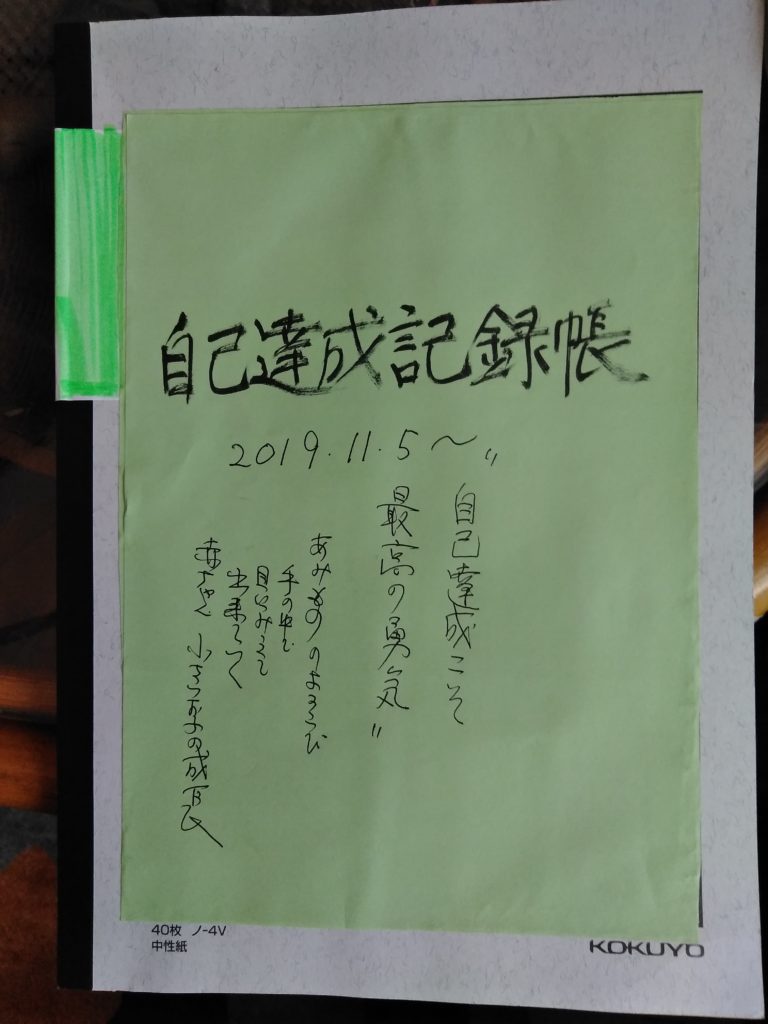 自己達成記録帳
2019.11.5〜
〃自己達成こそ
最高の勇気〃
あみもののよろこび
手の中で
目にみえて
出来てつく
赤ちゃん 小さな子の成長
40枚 ノ-4V
中性紙
KOKUYO